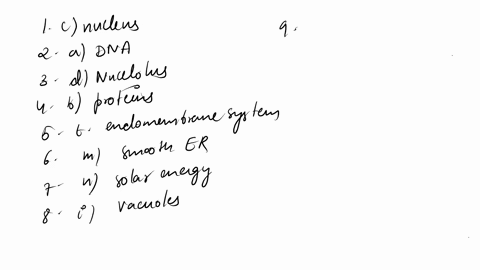 1. c) nucleus
2. a) DNA
3. d) Nucelolus
4. b) proteins
5. t. endomembrane system
6. m) smooth ER
7. n) solar energy
8. i) vacuoles
9.